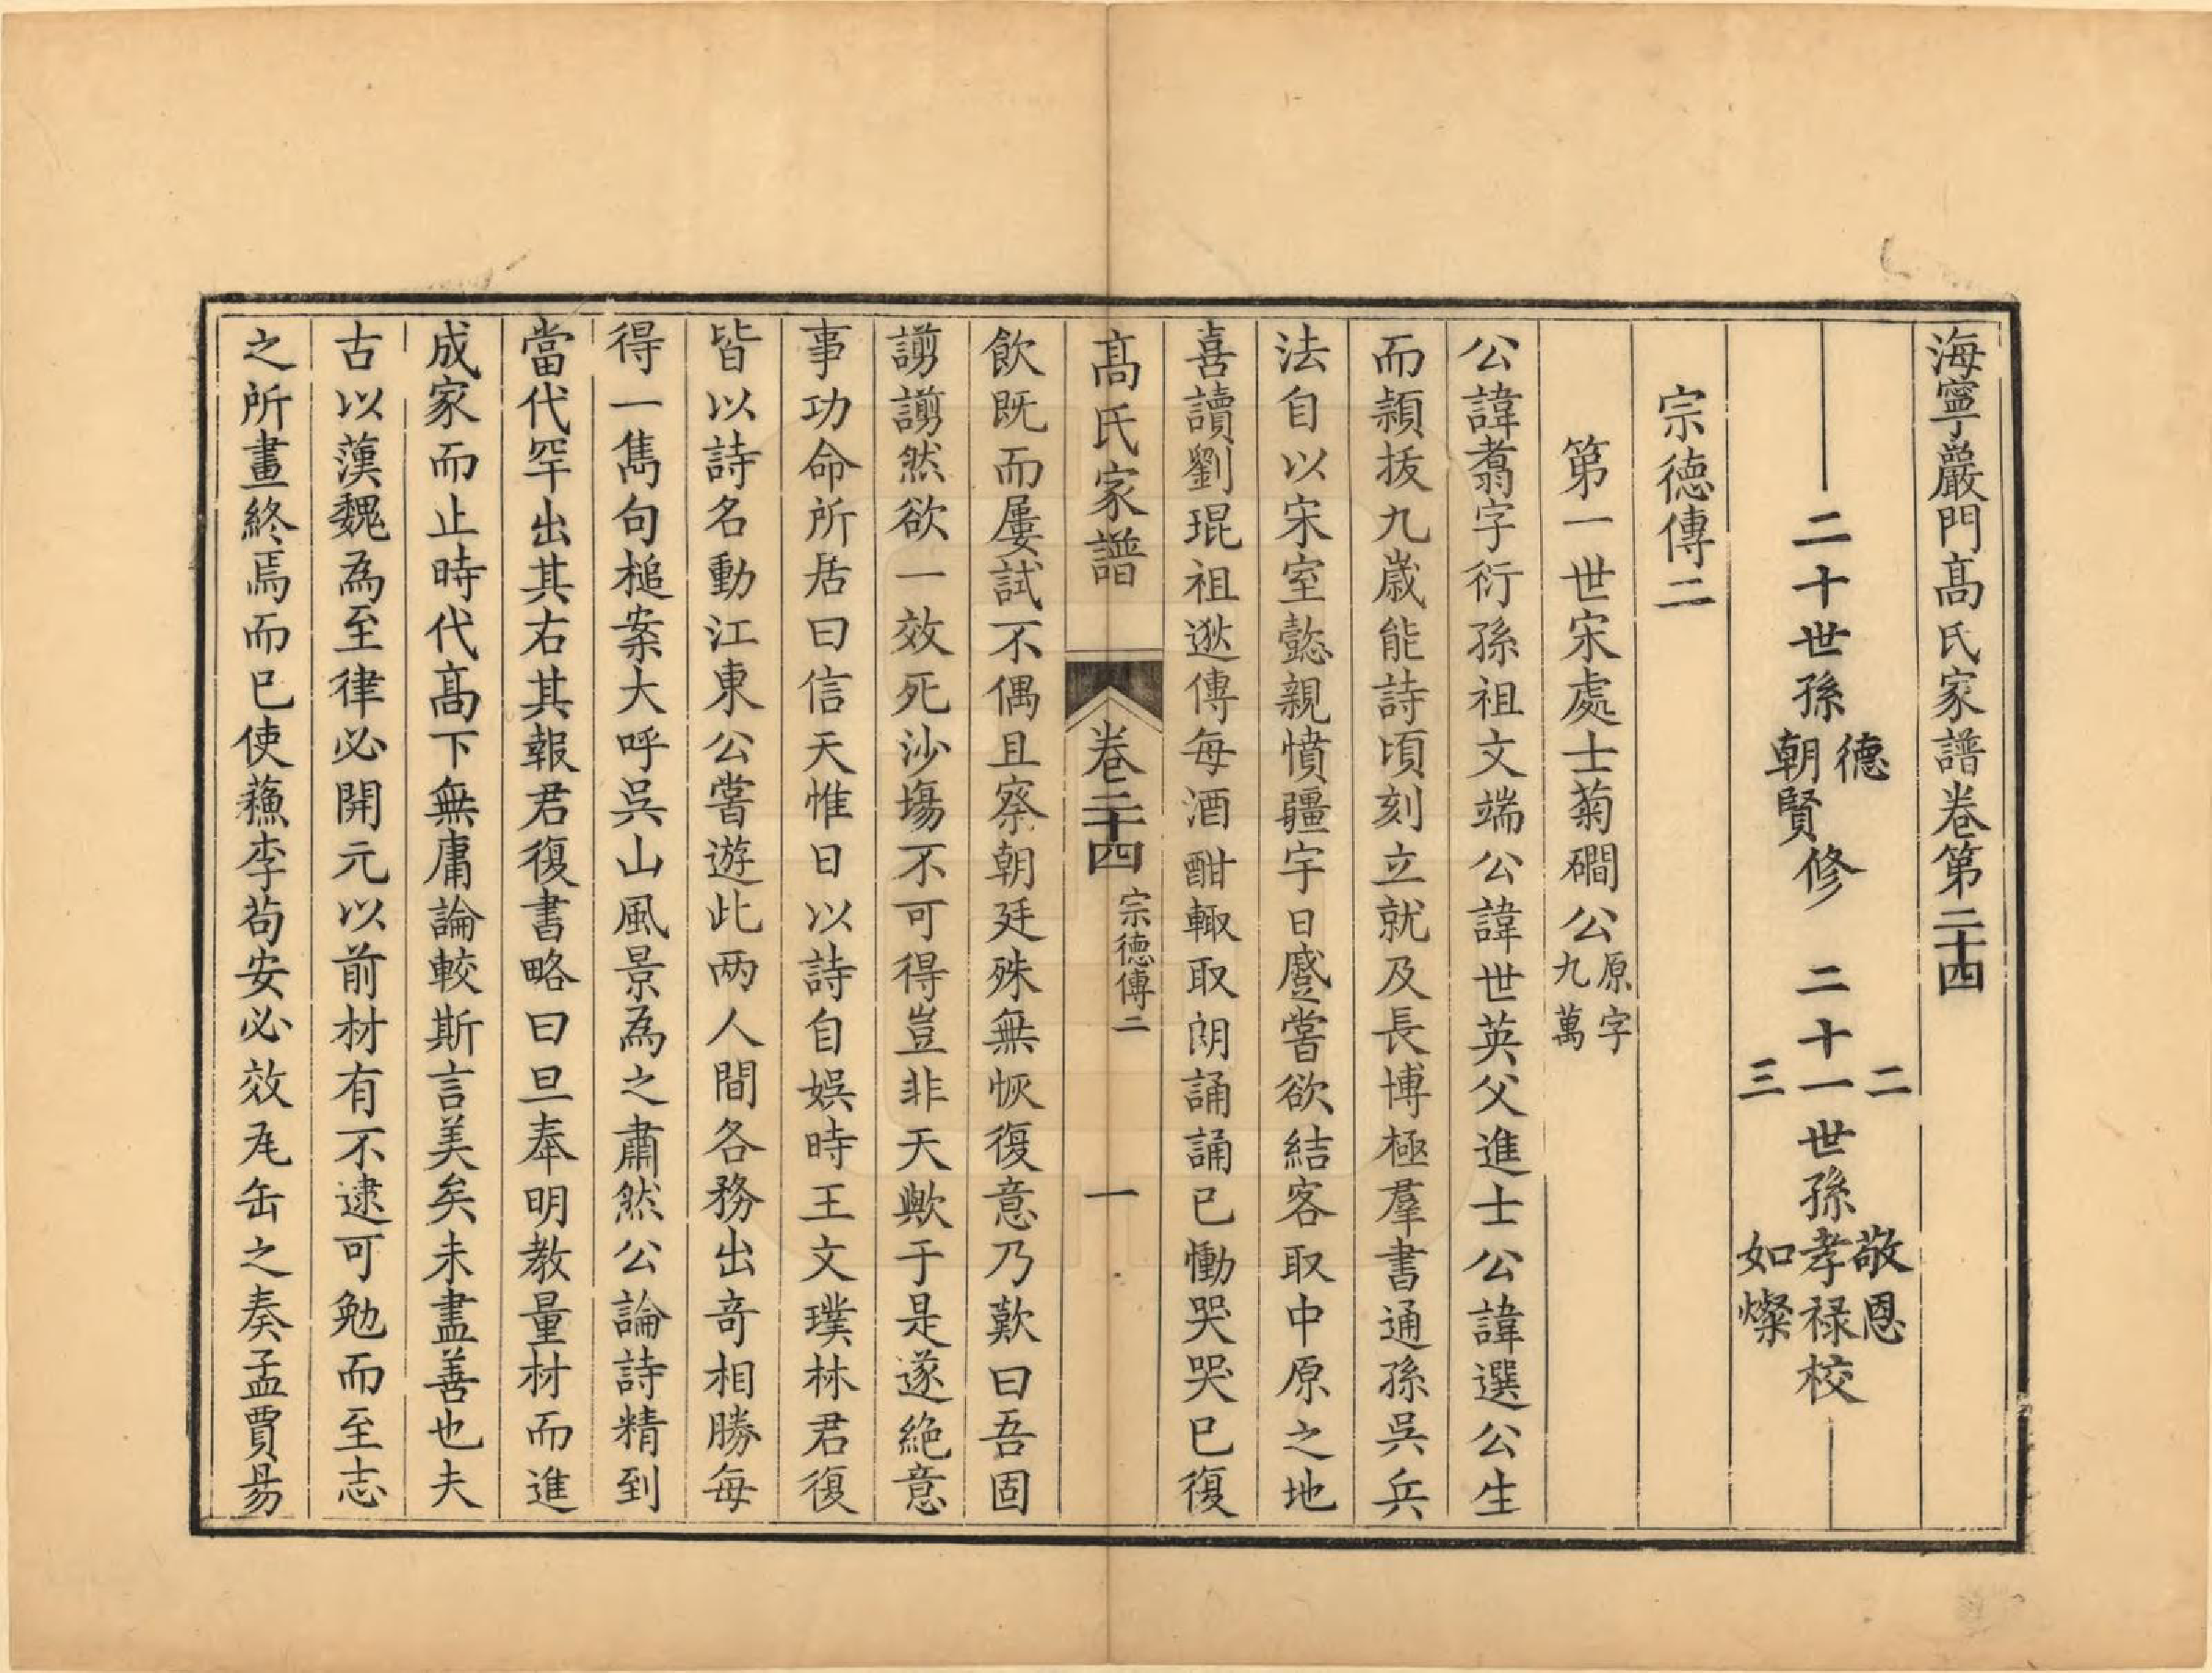 海寧嚴門髙氏家譜卷第二十四
二十世孫德朝賢修　二十一二三世孫敬恩孝祿如燦校
宗德傳二
第一世宋處士菊磵公原字九萬
公諱翥字衍孫祖文端公諱世英父進士公諱選公生
而穎拔九歲能詩頃刻立就及長博極羣書通孫吳兵
法自以宋室懿親憤疆宇日蹙嘗欲結客取中原之地
喜讀劉琨祖逖傳每酒酣輒取朗誦誦已慟哭哭已復
髙氏家譜　卷二十四　宗德傳二　一
飲既而屢試不偶且察朝廷殊無恢復意乃歎曰吾固
謭謭然欲一效死沙場不可得豈非天歟于是遂絕意
事功命所居曰信天惟日以詩自娛時王文璞林君復
皆以詩名動江東公嘗遊此两人間各務出奇相勝每
得一雋句槌案大呼吳山風景為之肅然公論詩精到
當代罕出其右其報君復書略曰旦奉明教量材而進
成家而止時代髙下無庸論較斯言美矣未盡善也夫
古以漢魏為至律必開元以前材有不逮可勉而至志
之所畫終焉而已使蘓李苟安必效𤬪缶之奏孟賈昜